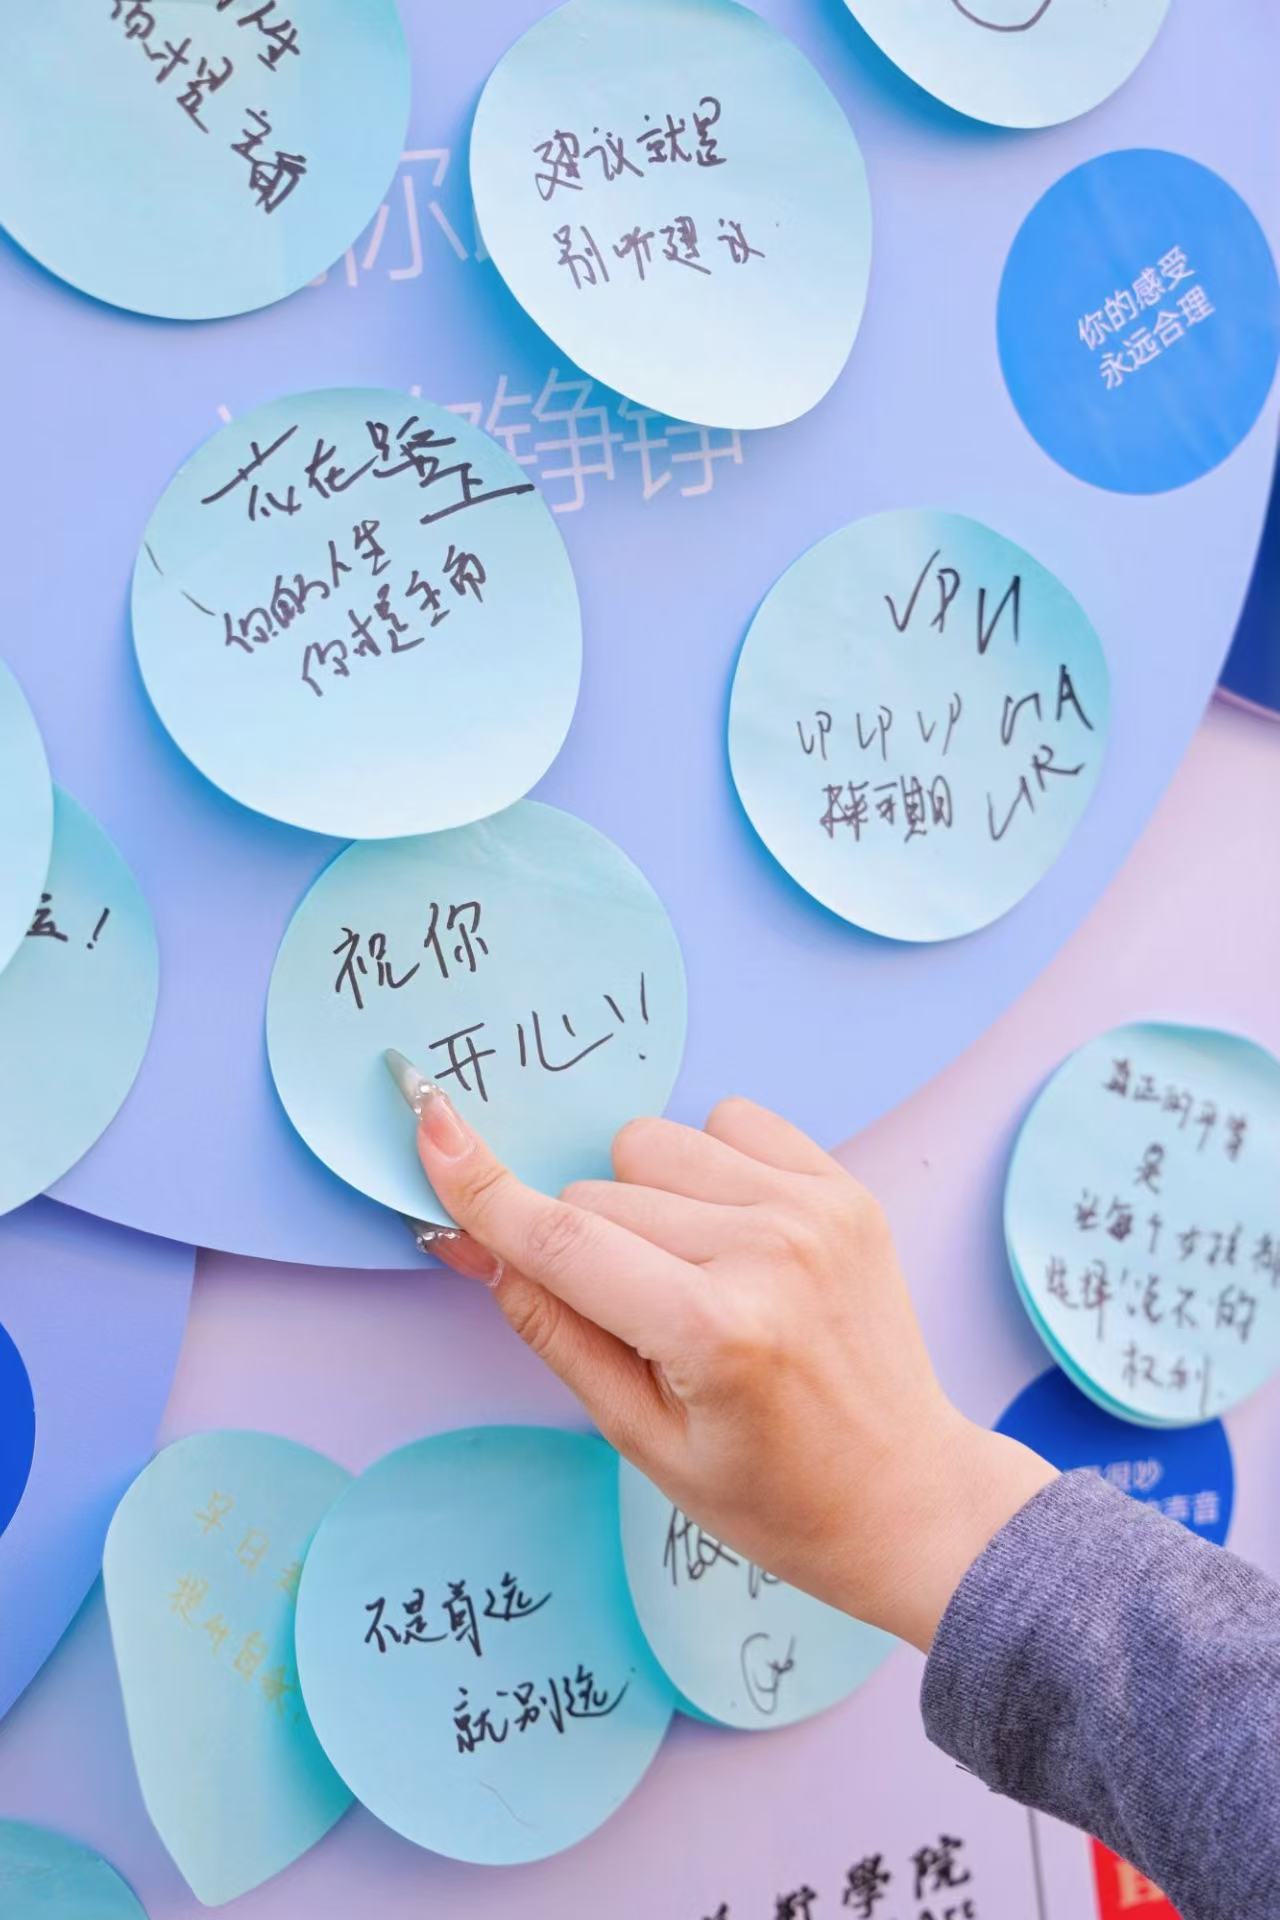 人生
主角
建议就是
别听建议
你的感受
永远合理
你
铮铮
花在路上
你的人生
你才是主角
VPN
UP UP UP
祝你
开心!!
!
真正的平等
是
让每个女孩都
选择'说不'的
权利.
很吵
声音
早日
提升自
不是首选
就别选
做
術學院
Art